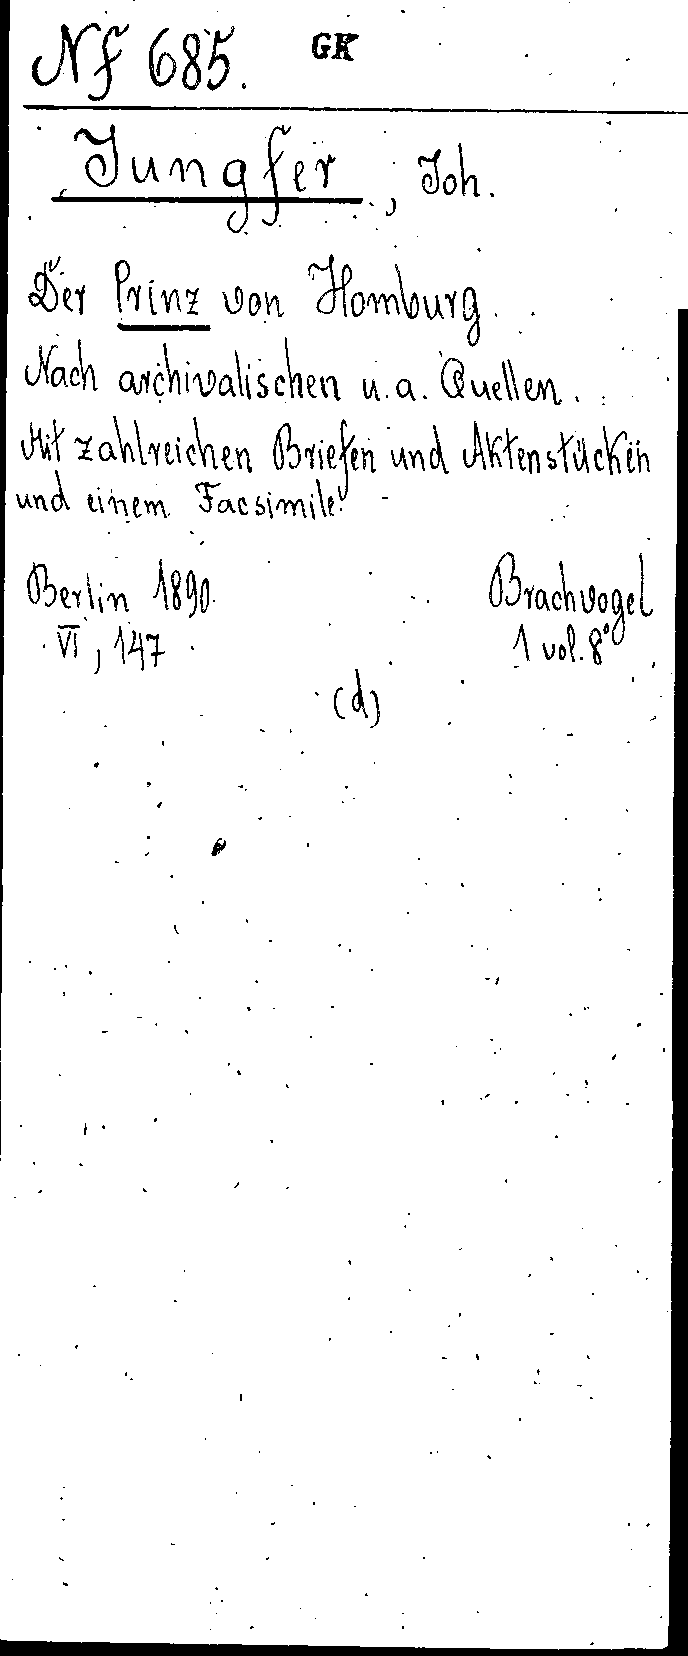 Nf 685. GK
Jungfer, Joh.
Der Prinz von Homburg.
Nach archivalischen u. a. Quellen.
Mit zahlreichen Briefen und Aktenstücken
und einem Facsimile.
Berlin 1890. Brachvogel
VI, 147 1 vol. 8°
(d)